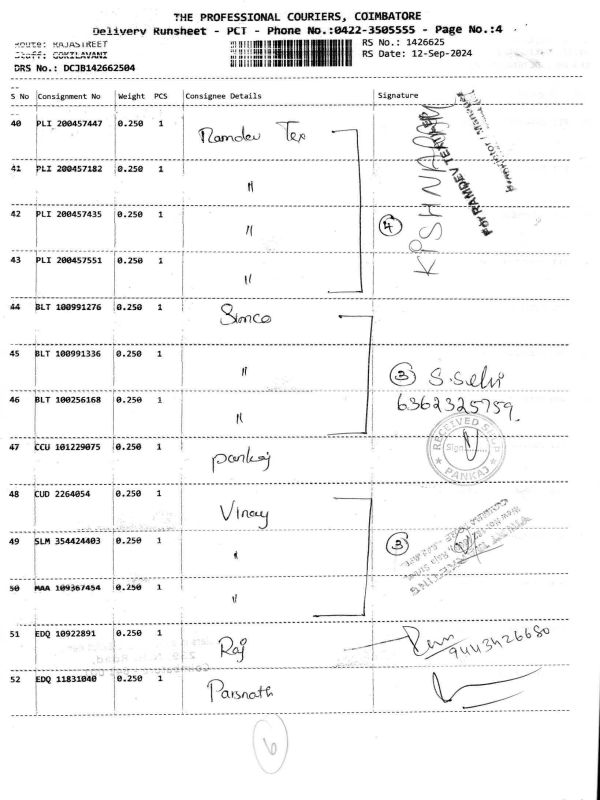 THE PROFESSIONAL COURIERS, COIMBATORE
Delivery Runsheet - PCT - Phone No.:0422-3505555 - Page No.:4
Route: RAJASTREET
RS No.: 1426625
Staff: GOKILAVANI
RS Date: 12-Sep-2024
DRS No.: DCJB142662504
S No Consignment No Weight PCS Consignee Details Signature
40 PLI 200457447 0.250 1 Ramdev Tex
For RAMDEV TEXTILES
Proprietor / Manager
41 PLI 200457182 0.250 1 "
42 PLI 200457435 0.250 1 " 4
43 PLI 200457551 0.250 1 "
44 BLT 100991276 0.250 1 Simco
45 BLT 100991336 0.250 1 " 3 S.Selvi
46 BLT 100256168 0.250 1 " 6362325759
47 CCU 101229075 0.250 1 pankaj
RECEIVED
Sign
PANKAJ
48 CUD 2264054 0.250 1 Vinay
49 SLM 354424403 0.250 1 " 3
50 MAA 109367454 0.250 1 "
51 EDQ 10922891 0.250 1 Raj
9443426680
52 EDQ 11831040 0.250 1 Parsnath
6